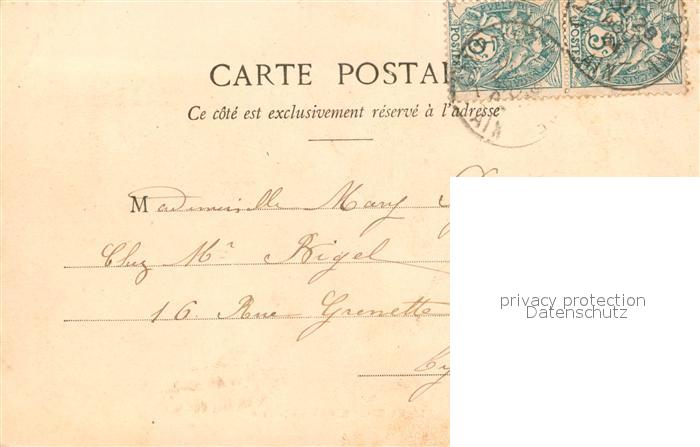 CARTE POSTAL
Ce côté est exclusivement réservé à l'adresse
Mademoiselle Mary
Chez Mr Rigel
16 Rue Grenette
Ly
privacy protection
Datenschutz
POSTES
5
AIN